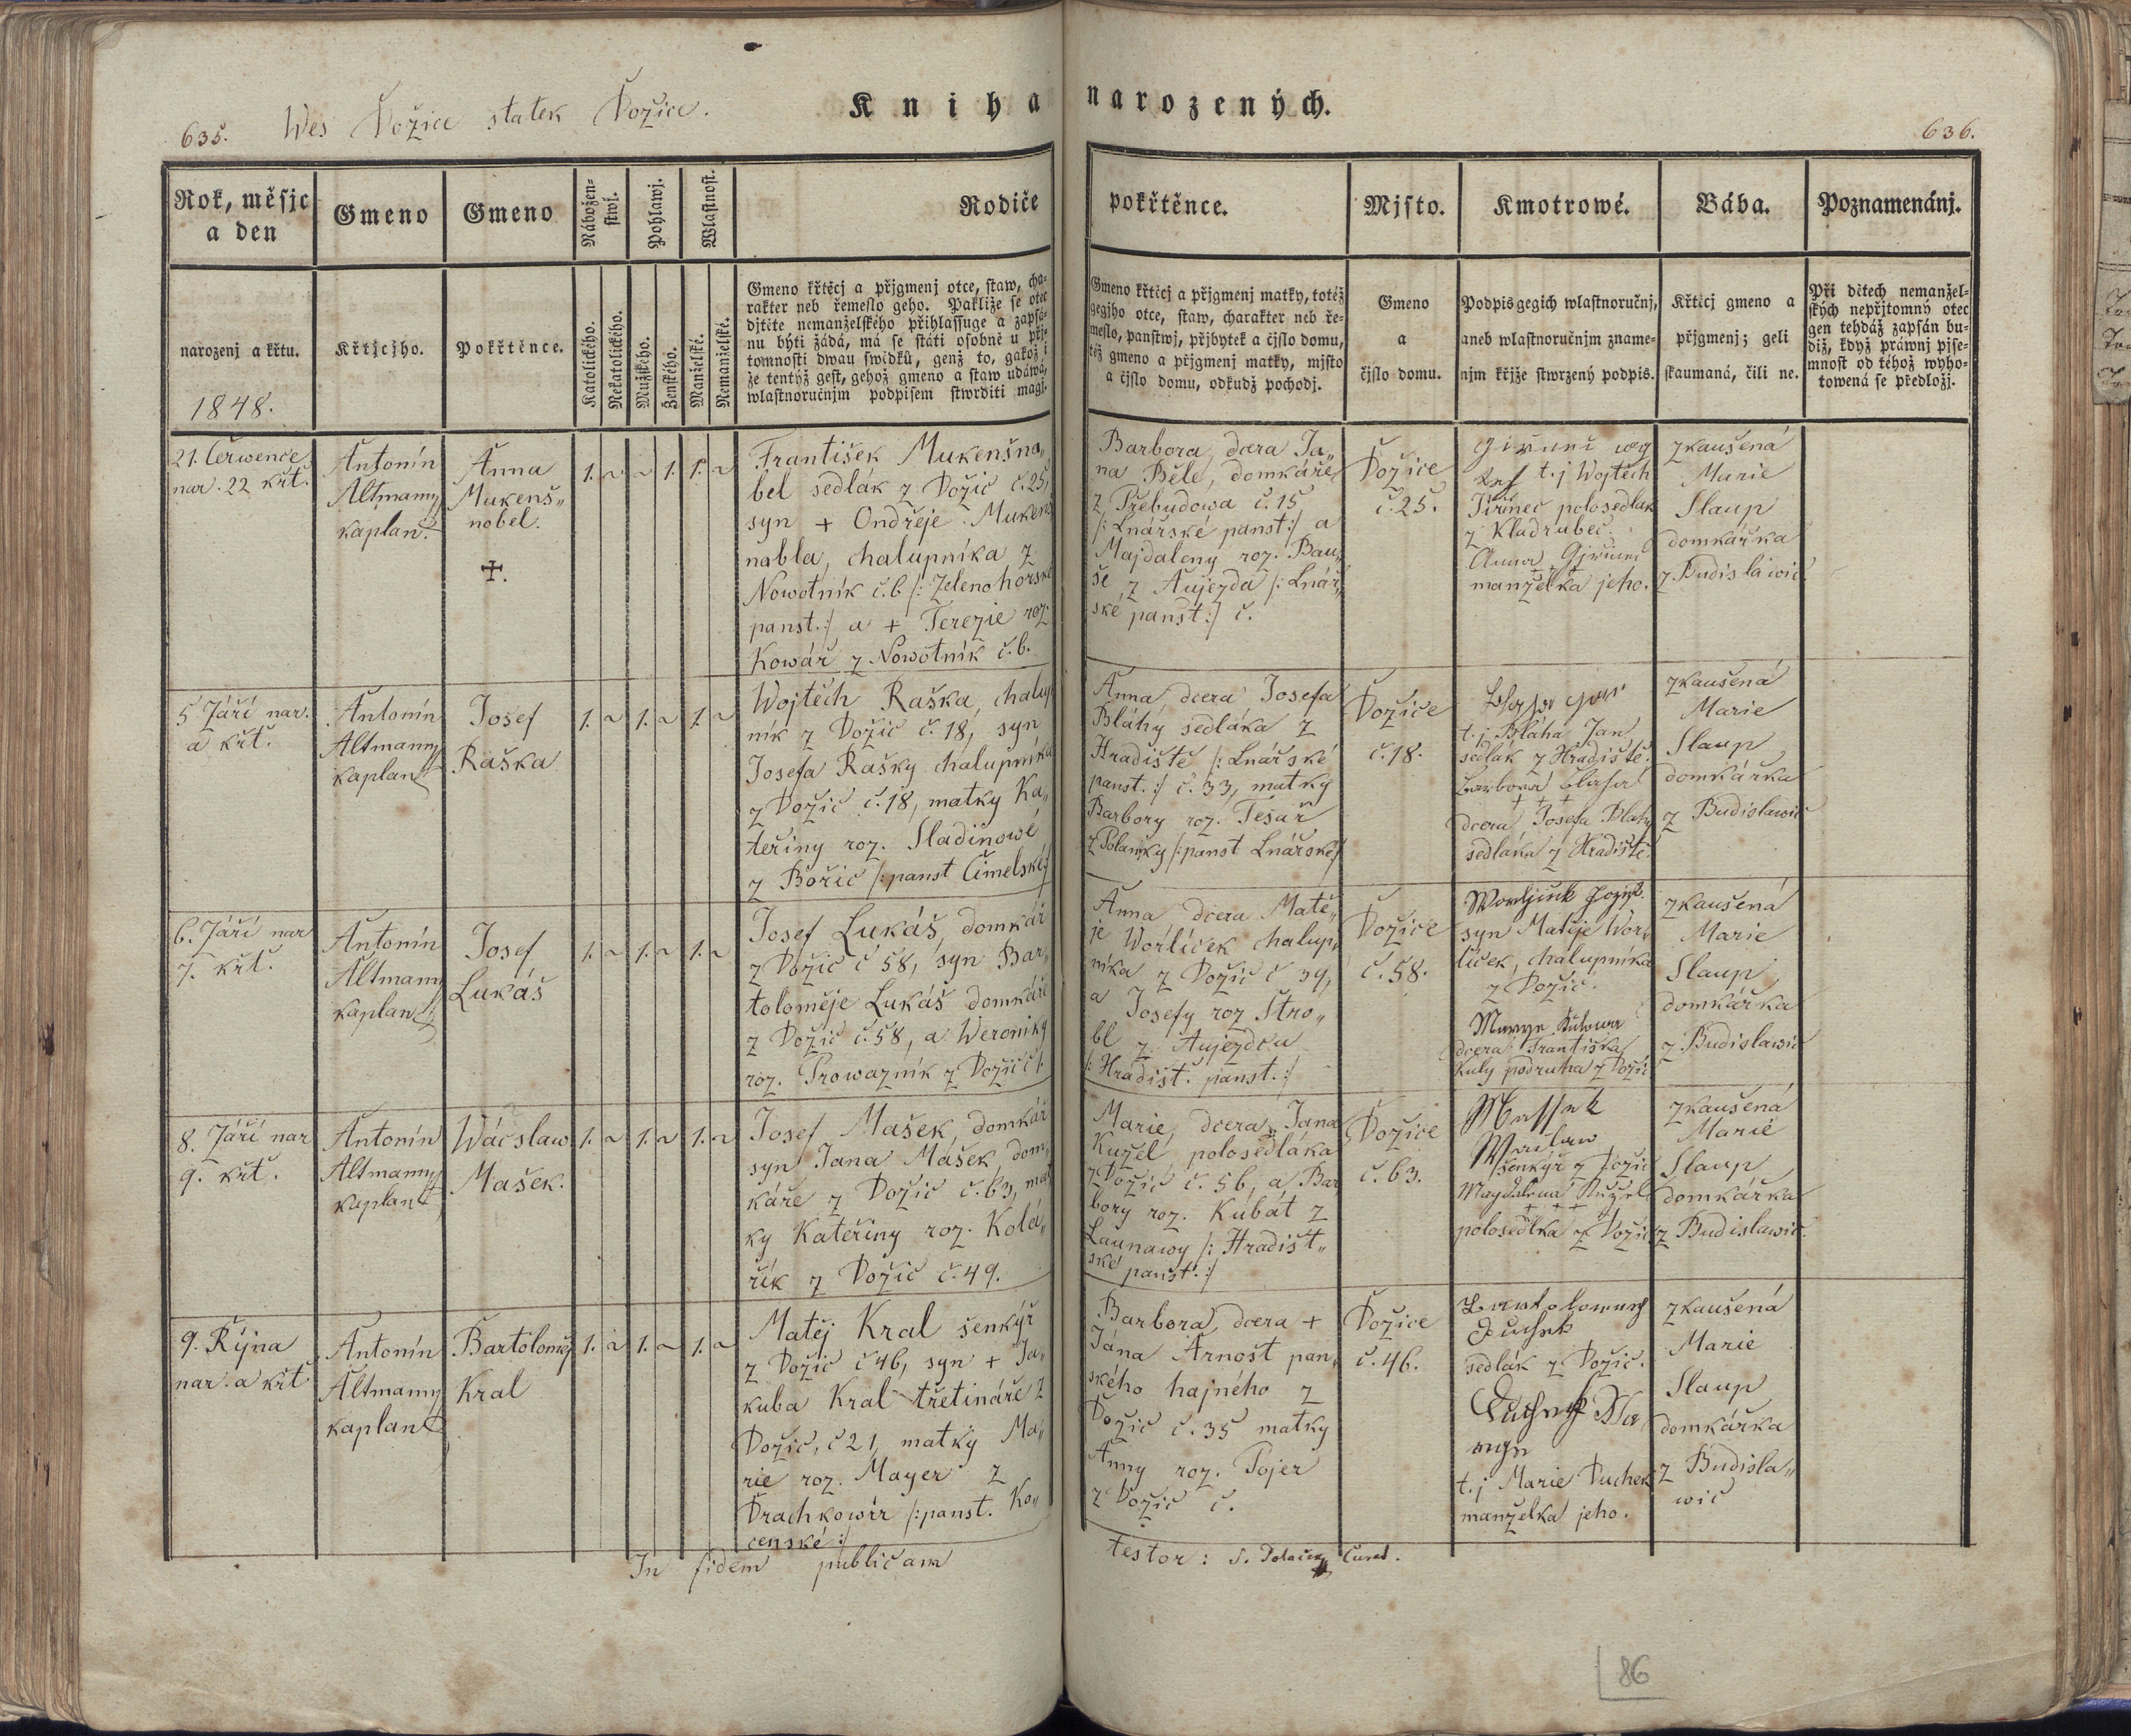 635.
Wes Dožice statek Dožice.
Kniha narozených.
636.
Rok, měsjc
a den
Gmeno
Gmeno
Nábožen-
stwj.
Pohlawj.
Wlastnost.
Rodiče
pokřtěnce.
Mjsto.
Kmotrowé.
Bába.
Poznamenánj.
narozenj a křtu.
1848.
Křtjcjho.
Pokřtěnce.
Katolického.
Nekatolického.
Mužského.
Ženského.
Manželské.
Nemanželské.
Gmeno křtěcj a přjgmenj otce, staw, cha-
rakter neb řemeslo geho. Pakliže se otec
djtěte nemanželského přihlassuge a zapsá-
nu býti žádá, má se státi osobně u přj-
tomnosti dwau swědků, genž to, gakož i
že tentýž gest, gehož gmeno a staw udáwá,
wlastnoručnjm podpisem stwrditi magj.
Gmeno křtěcj a přjgmenj matky, totéž
gegjho otce, staw, charakter neb ře-
meslo, panstwj, přjbytek a čjslo domu,
též gmeno a přjgmenj matky, mjsto
a čjslo domu, odkudž pochodj.
Gmeno
a
čjslo domu.
Podpis gegich wlastnoručnj,
aneb wlastnoručnjm zname-
njm křjže stwrzený podpis.
Křtěcj gmeno a
přjgmenj; geli
skaumaná, čili ne.
Při dětech nemanžel-
ských nepřjtomný otec
gen tehdáž zapsán bu-
diž, když práwnj pjse-
mnost od téhož wyho-
towená se předložj.
21. Čerwence
nar. 22 křt.
Antonín
Altmann
kaplan.
Anna
Mukenš„
nobel.
+.
1. ~ ~ 1. 1. ~
František Mukenšna„
bel sedlák z Dožic č. 25,
syn + Ondřeje Mukenš
nabla, chalupníka z
Nowotník č. 6 /: Zelenohorské
panst. :/ a + Terezie roz.
Kowář z Nowotník č. 6.
Barbora, dcera Ja„
na Běle, domkáře
z Přebudowa č. 15
/: Lnářské panst :/ a
Majdaleny roz. Bau„
še z Aujezda /: Lnář„
ské panst :/ č.
Dožice
č. 25.
t. j Wojtěch
Jiřinec polosedlak
z Kladrubec
Anna
manželka jeho.
zkaušená
Marie
Slaup
domkářka
z Budislawic.
5 Září nar.
a křt.
Antonín
Altmann
kaplan
Josef
Raška
1. ~ 1. ~ 1. ~
Wojtěch Raška, chalup
ník z Dožic č. 18, syn
Josefa Rašky chalupníka
z Dožic č. 18, matky Ka„
teřiny roz. Sladinowé
z Bořic /: panst Čimelské :/
Anna dcera Josefa
Bláhy sedláka z
Hradiště /: Lnářské
panst. :/ č. 33, matky
Barbory roz. Tesař
z Polanky /: panst Lnářské :/
Dožice
č. 18.
t. j Bláha Jan
sedlák z Hradiště.
Barbora Blaha
+ + +
dcera Josefa Blahy
sedláka z Hradiště.
zkaušená
Marie
Slaup
domkářka
z Budislawic
6. Září nar
7. křt.
Antonín
Altmann
kaplan
Josef
Lukáš
1. ~ 1. ~ 1. ~
Josef Lukáš, domkář
z Dožic č 58, syn Bar„
toloměje Lukáš domkáře
z Dožic č. 58, a Weroniky
roz. Prowazník z Dožic č 1.
Anna dcera Matě„
je Worlíček chalup„
níka z Dožic č 39,
a Josefy roz Štro„
bl z Aujezdcu
/: Hradišt. panst. :/
Dožice
č. 58.
syn Matěje Wor„
líček, chalupníka
z Dožic.
dcera Františka
Kuly podruha z Dožic
zkaušená
Marie
Slaup
domkářka
z Budislawic
8. Září nar
9. křt.
Antonín
Altmann
kaplan
Wácslaw
Mašek.
1. ~ 1. ~ 1. ~
Josef Mašek, domkář
syn Jana Mašek, dom„
káře z Dožic č. 63, mat
ky Kateřiny roz. Kola„
řík z Dožic č. 49.
Marie, dcera Jana
Kužel, polosedláka
z Dožic č. 56, a Bar
bory roz. Kubát z
Launawy /: Hradišt„
ské panst. :/
Dožice
č. 63.
Massek
Waclaw
šenkýř z Dožic
Magdalena Kužel
+ + +
polosedlka z Dožic
zkaušená
Marie
Slaup
domkářka
z Budislawic.
9. Října
nar. a křt
Antonín
Altmann
kaplan
Bartoloměj
Kral
1. ~ 1. ~ 1. ~
Matěj Kral šenkýř
z Dožic č 46, syn + Ja„
kuba Kral třetináře z
Dožic, č 21, matky Ma„
rie roz. Mayer z
Drachkowir /: panst. Ko„
censké :/
Barbora, dcera +
Jána Arnošt pan„
ského hajného z
Dožic č. 35 matky
Anny roz. Pojer
z Dožic č.
Dožice
č. 46.
Duchek
sedlák z Dožic.
t. j Marie Duchek
manželka jeho.
zkaušená
Marie
Slaup
domkářka
z Budisla„
wic
In fidem publicam
testor: J. Polaček Curat.
86